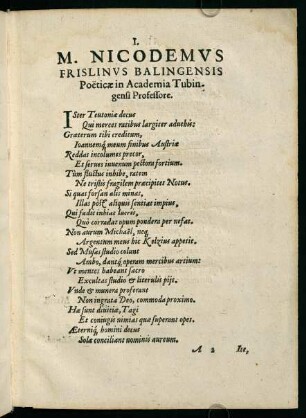 I.
M. NICODEMVS
FRISLINVS BALINGENSIS
Poëticæ in Academia Tubin-
gensi Professore.
ISter Teutoniæ decus
Qui merces ratibus largiter aduehis:
Gruterum tibi creditum,
Ioannemq́ meum finibus Austriæ
Reddas incolumes precor,
Et serues iuuenum pectora fortium.
Tùm fluctus inhibe, ratem
Ne tristis fragilem præcipitet Notus.
Si quas forsan alis minas,
Illas post aliquis sentiat impius,
Qui fundit inhiat lucris,
Quò corradat opum pondera per nefas.
Non aurum Michaël, neq́
Argentum meus hic Kelzius appetit.
Sed Musas studio colunt
Ambo, dantq́ operam mercibus artium:
Vt mentes habeant sacro
Excultas studio & literulis pijs.
Vnde & munera proferunt
Non ingrata Deo, commoda proximo.
Hæ sunt diuitiæ, Tagi
Et coniugis nimias quæ superant opes.
Æternùq́, homini decus
Solæ conciliant nominis aureum.
A 2